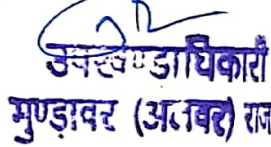 उपखण्डाधिकारी
मुण्डावर (अलवर) राज